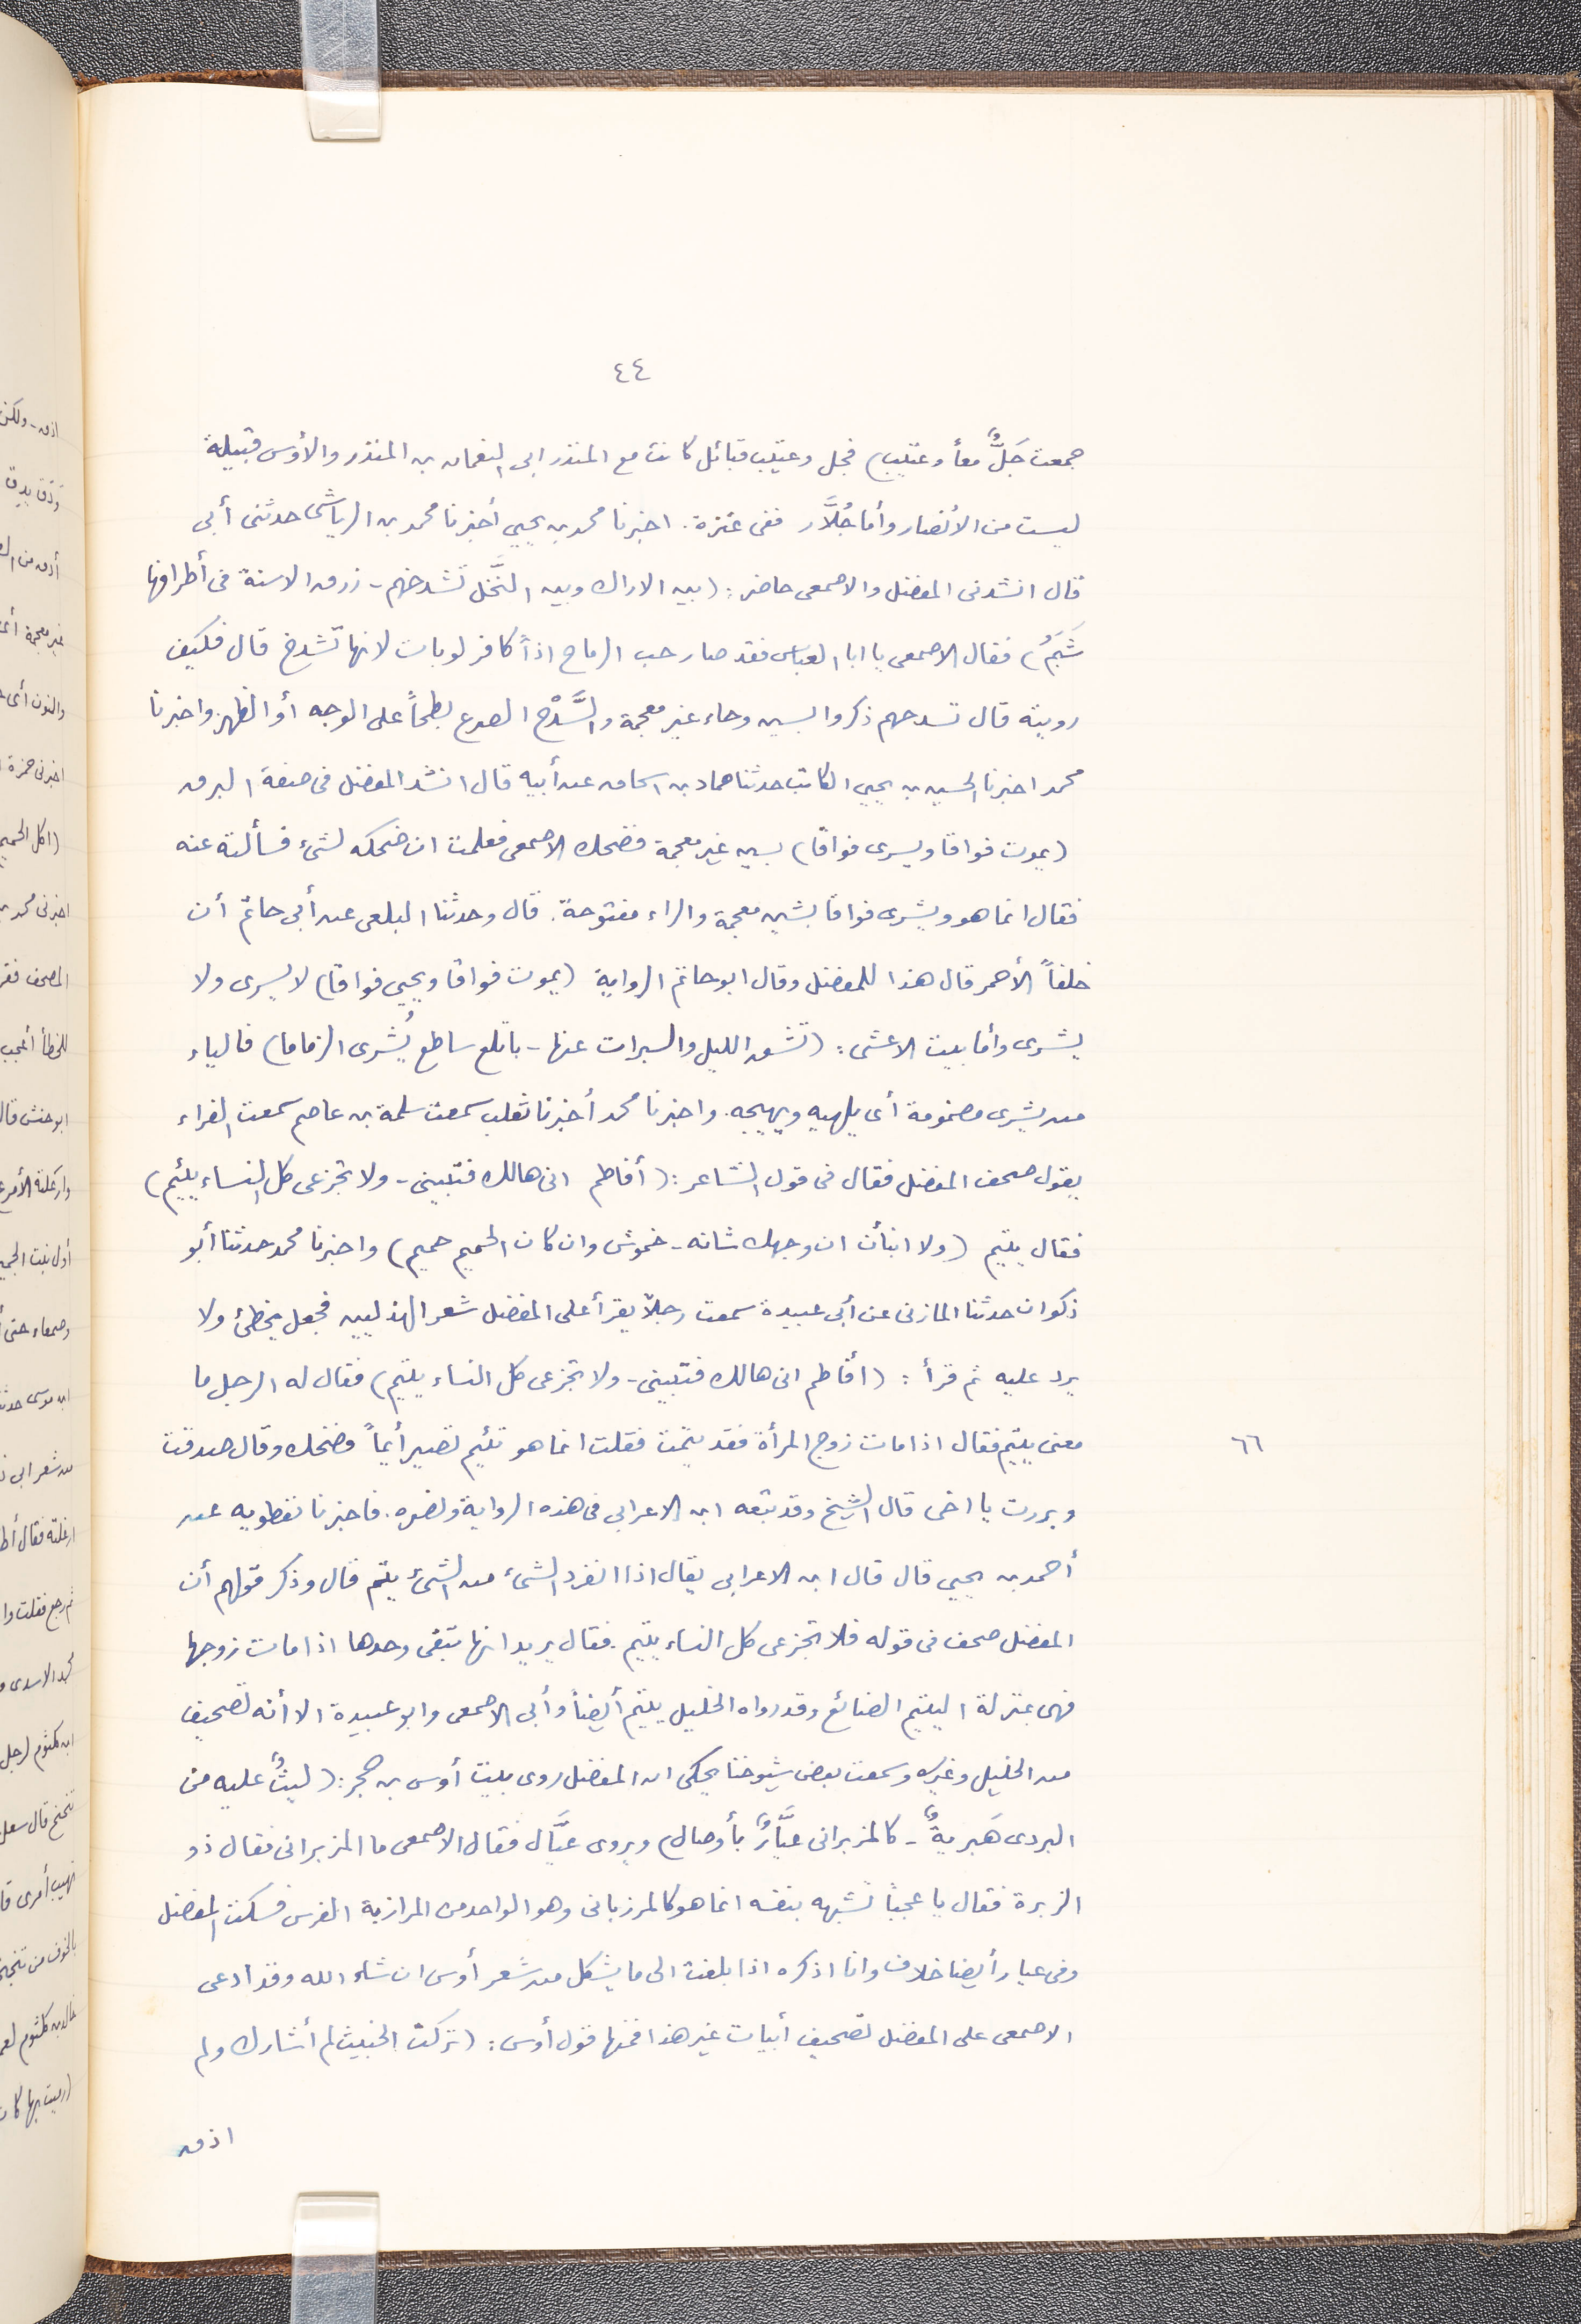 ٤٤
جمعت جَلٌّ معاً وعتيب) فجل وعتيب قبائل كانت مع المنذر ابى النعمان بن المنذر والأوس قبيلة
ليست من الأنصار وأما جُلَّار ففى عنزة. اخبرنا محمد بن يحيى أخبرنا محمد بن الرياشى حدثنى أبى
قال انشدنى المفضل والاصمعى حاضر: (بين الاراك وبين النَّخل تشدخهم - زرق الاسنة فى أطرافها
شَبَمُ) فقال الاصمعى يا ابا العباس فقد صار حب الرماح اذاً كافر لوبات لانها تشدخ قال فكيف
رويته قال تسدحهم ذكروا لسين وحاء غير معجمة والسَّدْح الصرع بطحاً على الوجه أو الظهر واخبرنا
محمد اخبرنا الحسين بن يحيى الكاتب حدثنا حماد بن اسحاق عن أبيه قال انشد المفضل فى صفة البرق
(يموت فواقا ويسرى فواقا) بسين غير معجمة فضحك الاصمعى فعلمت ان ضحكه لشىء فسألته عنه
فقال انما هو ويشرى فواقا بشين معجمة والراء مفتوحة. قال وحدثنا البلعى عن أبى حاتم أن
خلفاً الأحمر قال هذا للمفضل وقال ابو حاتم الرواية (يموت فواقا ويحيى فواقا) لا يسرى ولا
يشرى وأما بيت الاعشى: (تشق الليل والسبرات عنها - باتلع ساطع يُشرى الزماما) فالياء
من يشرى مضمومة أى يلهيه ويهيجه. واخبرنا محمد أخبرنا ثعلب سمعت سلمة بن عاصم سمعت الفراء
يقول صحف المفضل فقال فى قول الشاعر: (أفاطم انى هالك فتبينى - ولا تجزعى كل النساء يئيم)
فقال يتيم (ولا انبأن ان وجهك شانه - خموش وان كان الحميم حميم) واخبرنا محمد حدثنا أبو
ذكوان حدثنا المازنى عن أبى عبيدة سمعت رجلاً يقرأ على المفضل شعر الهذليين فجعل يخطئ ولا
يرد عليه ثم قرأ: (أفاطم انى هالك فتبينى - ولا تجزعى كل النساء يتيم) فقال له الرجل ما
معنى يتيم فقال اذا مات زوج المرأة فقد يتمت فقلت انما هو تئيم تصير أيماً فضحك وقال صدقت
٦٦
وبررت يا اخى قال الشيخ وقد تبعه ابن الاعرابى فى هذه الرواية ونصره. فاخبرنا نفطويه عن
أحمد بن يحيى قال قال ابن الاعرابى يقال اذا انفرد الشىء من الشىء يتم قال وذكر قولهم أن
المفضل صحف فى قوله فلا تجزعى كل النساء يتيم. فقال يريد انها تبقى وحدها اذا مات زوجها
فهى بمنزلة اليتيم الضائع وقد رواه الخليل يتيم أيضاً وأبى الاصمعى وابو عبيدة الا أنه تصحيف
من الخليل وغيره وسمعت بعض شيوخنا يحكى ان المفضل روى بيت أوس بن حجر: (ليثٌ عليه من
البردى هَبريةٌ - كالمزبرانى عيَّارٌ بأوصال) ويروى عيَّال فقال الاصمعى ما المزبرانى فقال ذو
الزبرة فقال يا عجباً تشبهه بنفسه انما هو كالمرزبانى وهو الواحد من المرازبة الفرس فسكت المفضل
وفى عيار أيضا خلاف وانا اذكره اذا بلغت الى ما يشكل من شعر أوس ان شاء الله وقد ادعى
الاصمعى على المفضل تصحيف أبيات غير هذا فمنها قول أوس: (تركت الخبيث لم أشارك ولم
اذق